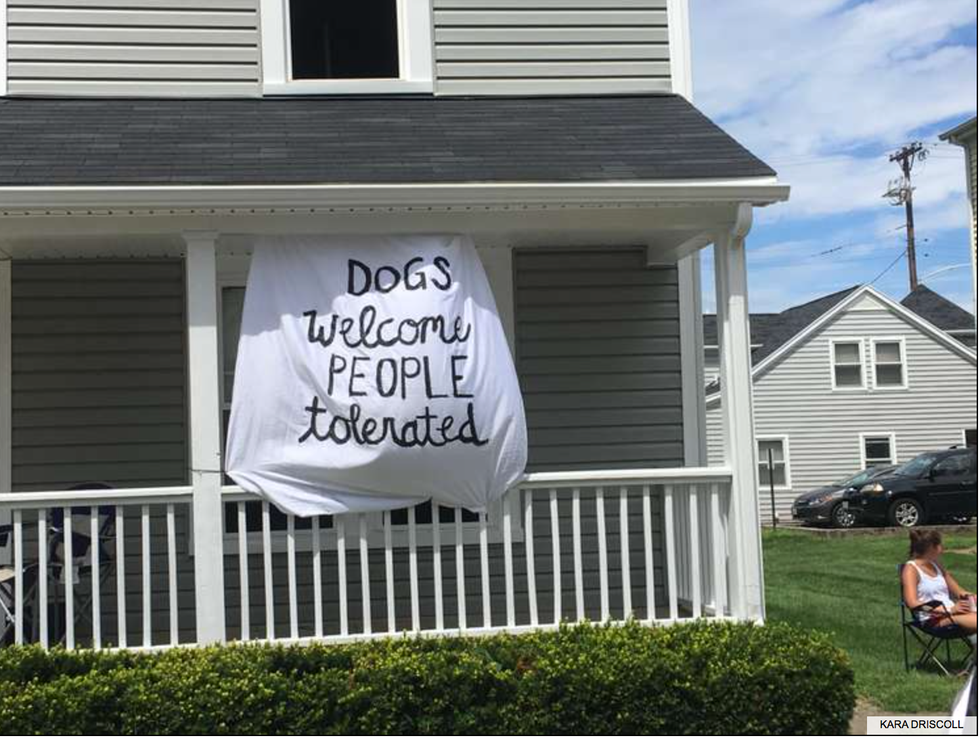 DOGS
welcome
PEOPLE
tolerated
KARA DRISCOLL